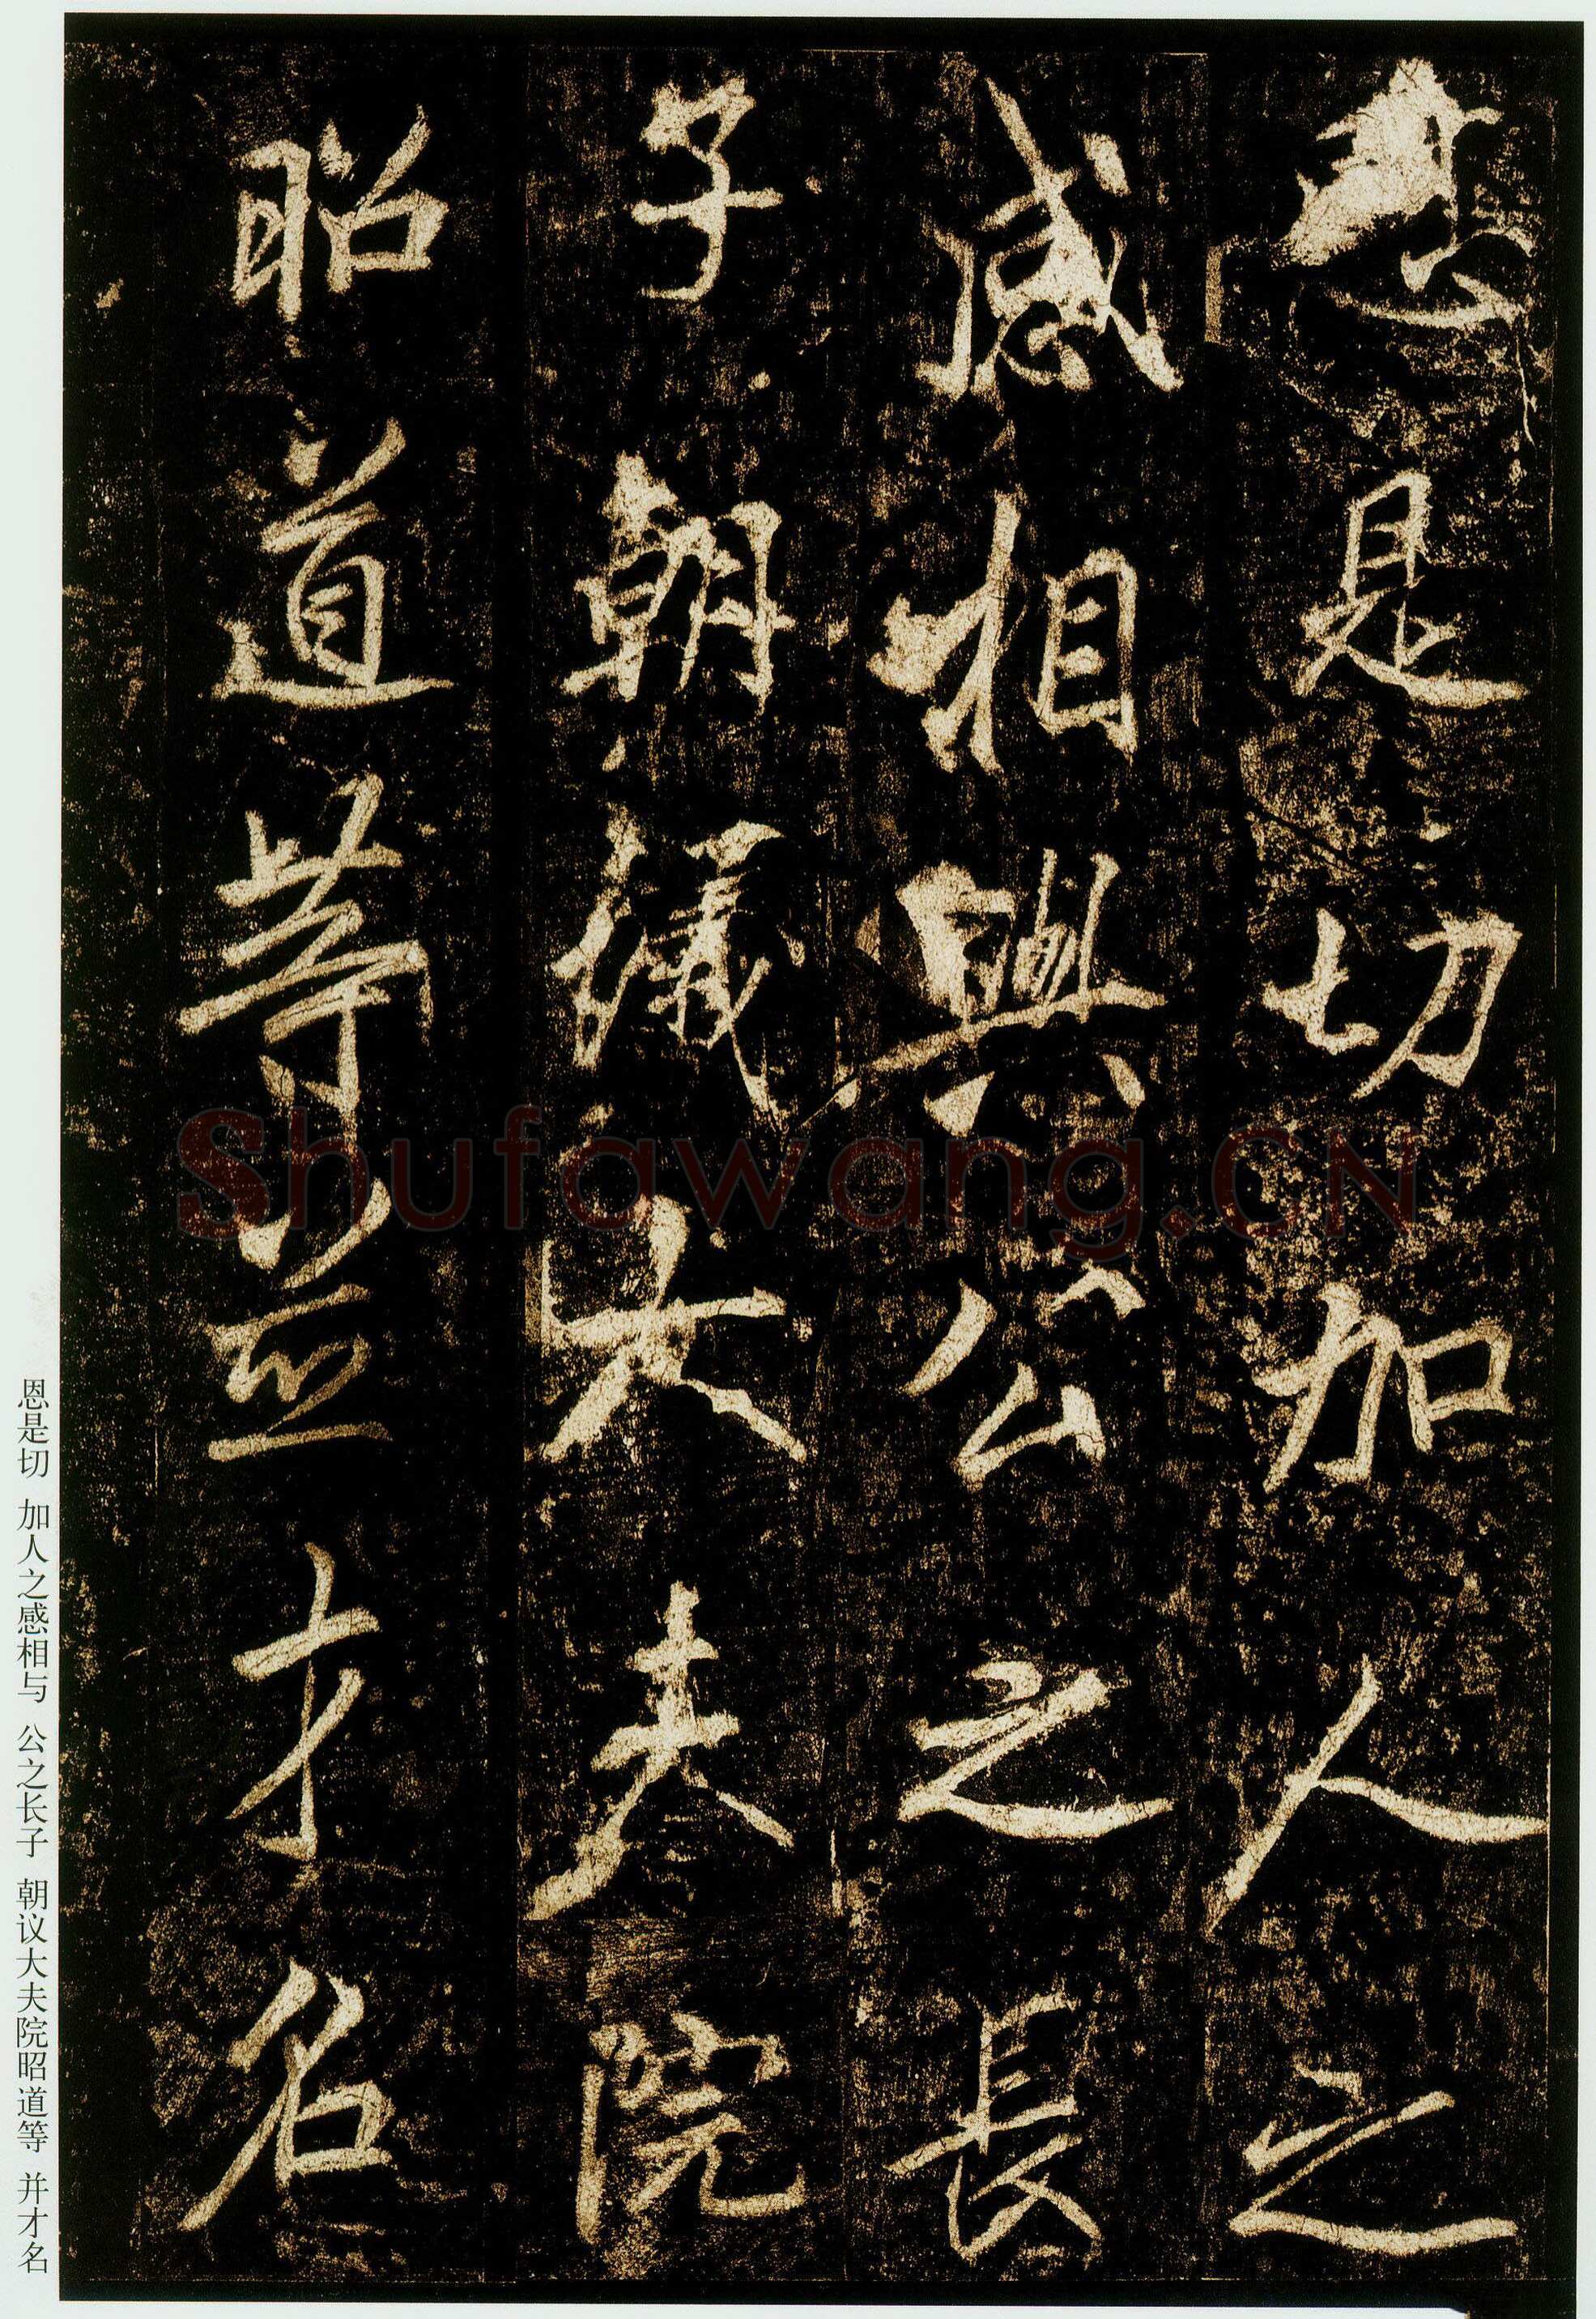 恩是切加人之
感相與公之長
子朝議大夫院
昭道等並才名
恩是切 加人之感相与 公之长子 朝议大夫院昭道等 并才名
Shufawang.CN